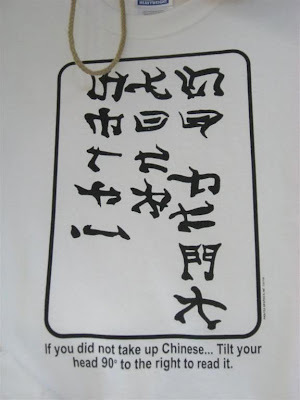 GO FUCK
YOUR
SELF!
If you did not take up Chinese... Tilt your
head 90° to the right to read it.